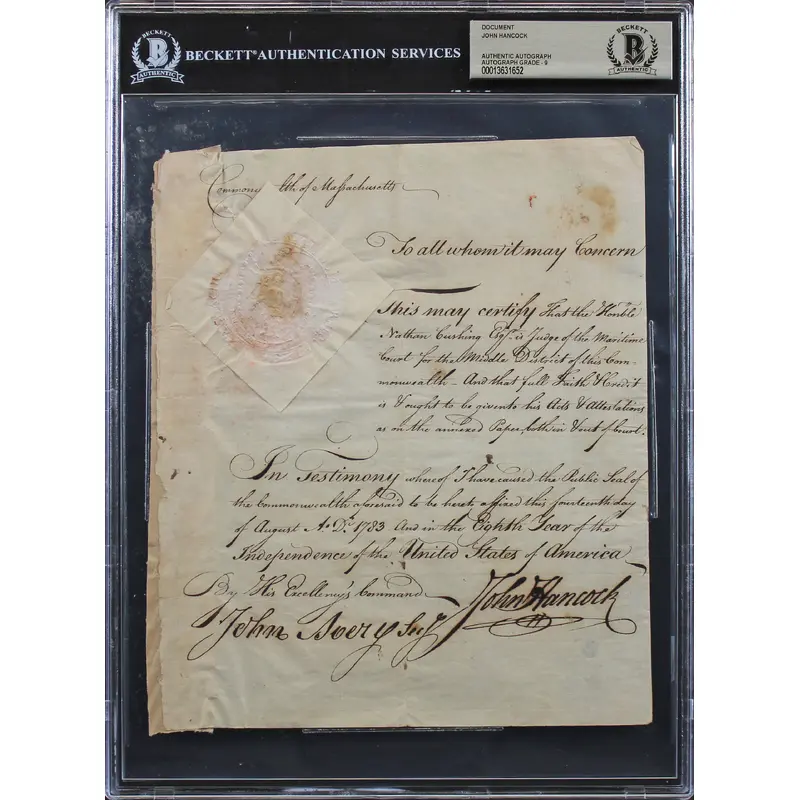 BECKETT
B
AUTHENTIC
BECKETT® AUTHENTICATION SERVICES
DOCUMENT
JOHN HANCOCK
AUTHENTIC AUTOGRAPH
AUTOGRAPH GRADE - 9
00013631652
BECKETT
B
AUTHENTIC
Commonw lth of Massachusetts
To all whom it may Concern
This may certify That the Honble
Nathan Cushing Esqr. is Judge of the Maritime
Court for the Middle District of this Com-
monwealth - And that full Faith & Credit
is & ought to be given to his Acts & Attestations
as on the annexed Paper, both in & out of Court.
In Testimony whereof I have caused the Public Seal of
the Commonwealth aforesaid to be hereto affixed this fourteenth day
of August A. D. 1783 And in the Eighth Year of the
Independence of the United States of America
By His Excellency's Command
John Hancock
John Avery Secy